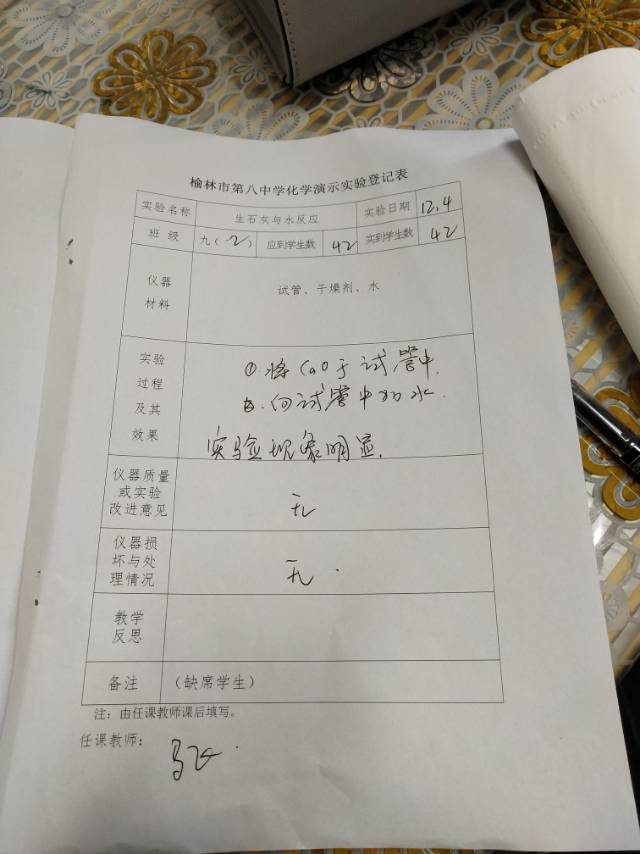 榆林市第八中学化学演示实验登记表
实验名称 生石灰与水反应 实验日期 12.4
班级 九(2) 应到学生数 42 实到学生数 42
仪器
材料
试管、干燥剂、水
实验
过程
及其
效果
①.将CaO于试管中.
②.向试管中加水.
实验现象明显.
仪器质量
或实验
改进意见
无
仪器损
坏与处
理情况
无.
教学
反思
备注 (缺席学生)
注:由任课教师课后填写。
任课教师: